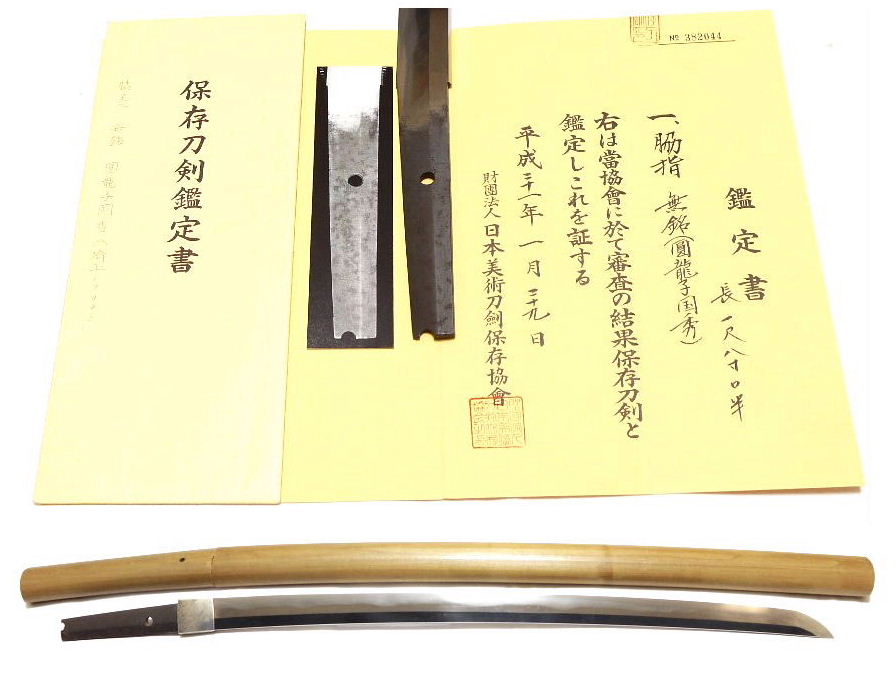 鑑定書
長一尺八寸〇半
一、脇指 無銘(圓龍子国秀)
右は當協會に於て審査の結果保存刀剣と
鑑定しこれを証する
平成二十一年一月二十九日
財團法人日本美術刀劍保存協會
№ 382044
保存刀剣鑑定書